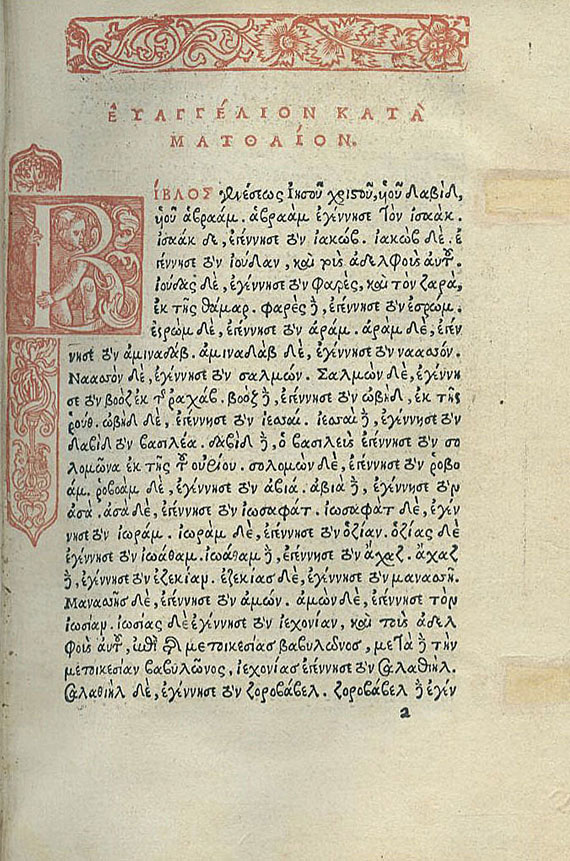 ΕΥΑΓΓΕΛΙΟΝ ΚΑΤΑ
ΜΑΤΘΑΙΟΝ.
ΒΙΒΛΟΣ γενέσεως Ιησοῦ χριστοῦ, υἱοῦ δαβὶδ,
υἱοῦ ἀβραάμ. ἀβραὰμ ἐγέννησε τὸν ἰσαάκ.
ἰσαὰκ δὲ, ἐγέννησε τὸν ἰακώβ. ἰακὼβ δὲ. ἐ
γέννησε τὸν ἰούδαν, καὶ τοὺς ἀδελφοὺς αὐτοῦ.
ἰούδας δὲ, ἐγέννησε τὸν φαρὲς, καὶ τὸν ζαρὰ,
ἐκ τῆς θάμαρ. φαρὲς δὲ, ἐγέννησε τὸν ἐσρώμ.
ἐσρὼμ δὲ, ἐγέννησε τὸν ἀράμ. ἀρὰμ δὲ, ἐγέν
νησε τὸν ἀμιναδάβ. ἀμιναδὰβ δὲ, ἐγέννησε τὸν ναασσόν.
Ναασσὸν δὲ, ἐγέννησε τὸν σαλμών. Σαλμὼν δὲ, ἐγέννη
σε τὸν βοὸζ ἐκ τῆς ραχάβ. βοὸζ δὲ, ἐγέννησε τὸν ὠβὴδ, ἐκ τῆς
ῥούθ. ὠβὴδ δὲ, ἐγέννησε τὸν ἰεσσαί. ἰεσσαὶ δὲ, ἐγέννησε τὸν
δαβὶδ τὸν βασιλέα. δαβὶδ δὲ, ὁ βασιλεὺς ἐγέννησε τὸν σο
λομῶνα ἐκ τῆς τοῦ οὐρίου. σολομὼν δὲ, ἐγέννησε τὸν ῥοβο
άμ. ῥοβοὰμ δὲ, ἐγέννησε τὸν ἀβιά. ἀβιὰ δὲ, ἐγέννησε τὸν
ἀσά. ἀσὰ δὲ, ἐγέννησε τὸν ἰωσαφάτ. ἰωσαφὰτ δὲ, ἐγέν
νησε τὸν ἰωράμ. ἰωρὰμ δὲ, ἐγέννησε τὸν ὀζίαν. ὀζίας δὲ
ἐγέννησε τὸν ἰωάθαμ. ἰωάθαμ δὲ, ἐγέννησε τὸν ἄχαζ. ἄχαζ
δὲ, ἐγέννησε τὸν ἐζεκίαν. ἐζεκίας δὲ, ἐγέννησε τὸν μανασσῆ.
Μανασσῆς δὲ, ἐγέννησε τὸν ἀμών. ἀμὼν δὲ, ἐγέννησε τὸν
ἰωσίαν. ἰωσίας δὲ ἐγέννησε τὸν ἰεχονίαν, καὶ τοὺς ἀδελ
φοὺς αὐτοῦ, ἐπὶ τῆς μετοικεσίας βαβυλῶνος, μετὰ δὲ τὴν
μετοικεσίαν βαβυλῶνος, ἰεχονίας ἐγέννησε τὸν Σαλαθιήλ.
Σαλαθιὴλ δὲ, ἐγέννησε τὸν ζοροβάβελ. ζοροβάβελ δὲ ἐγέν
a